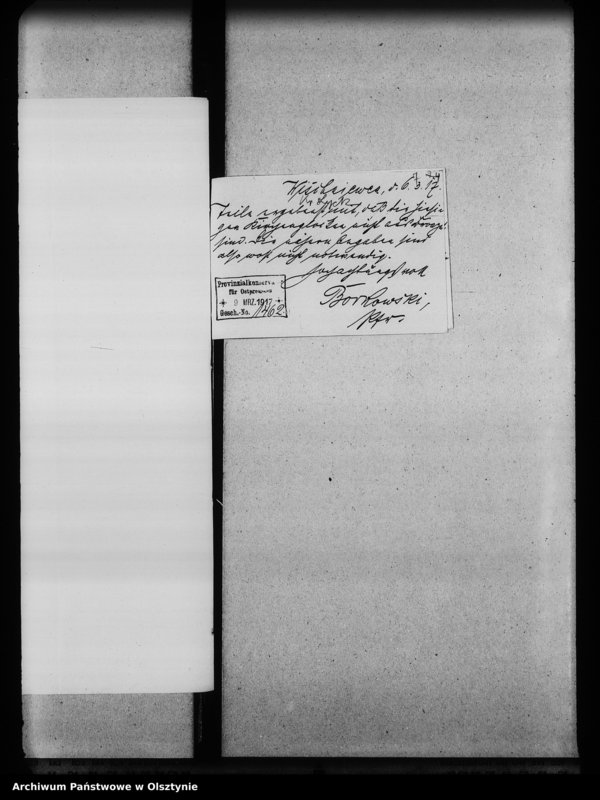 d. 6. 3. 17.
Teile ergebenst mit, daß die hiesi-
gen Kirchenglocken nicht aus Bronze
sind. Die näheren Angaben sind
also wohl nicht notwendig.
Hochachtungsvoll
Borkowski,
Pfr.
Provinzialkonserv
für Ostpreussen
9 MRZ. 1917
Gesch.-No. 1462
Archiwum Państwowe w Olsztynie